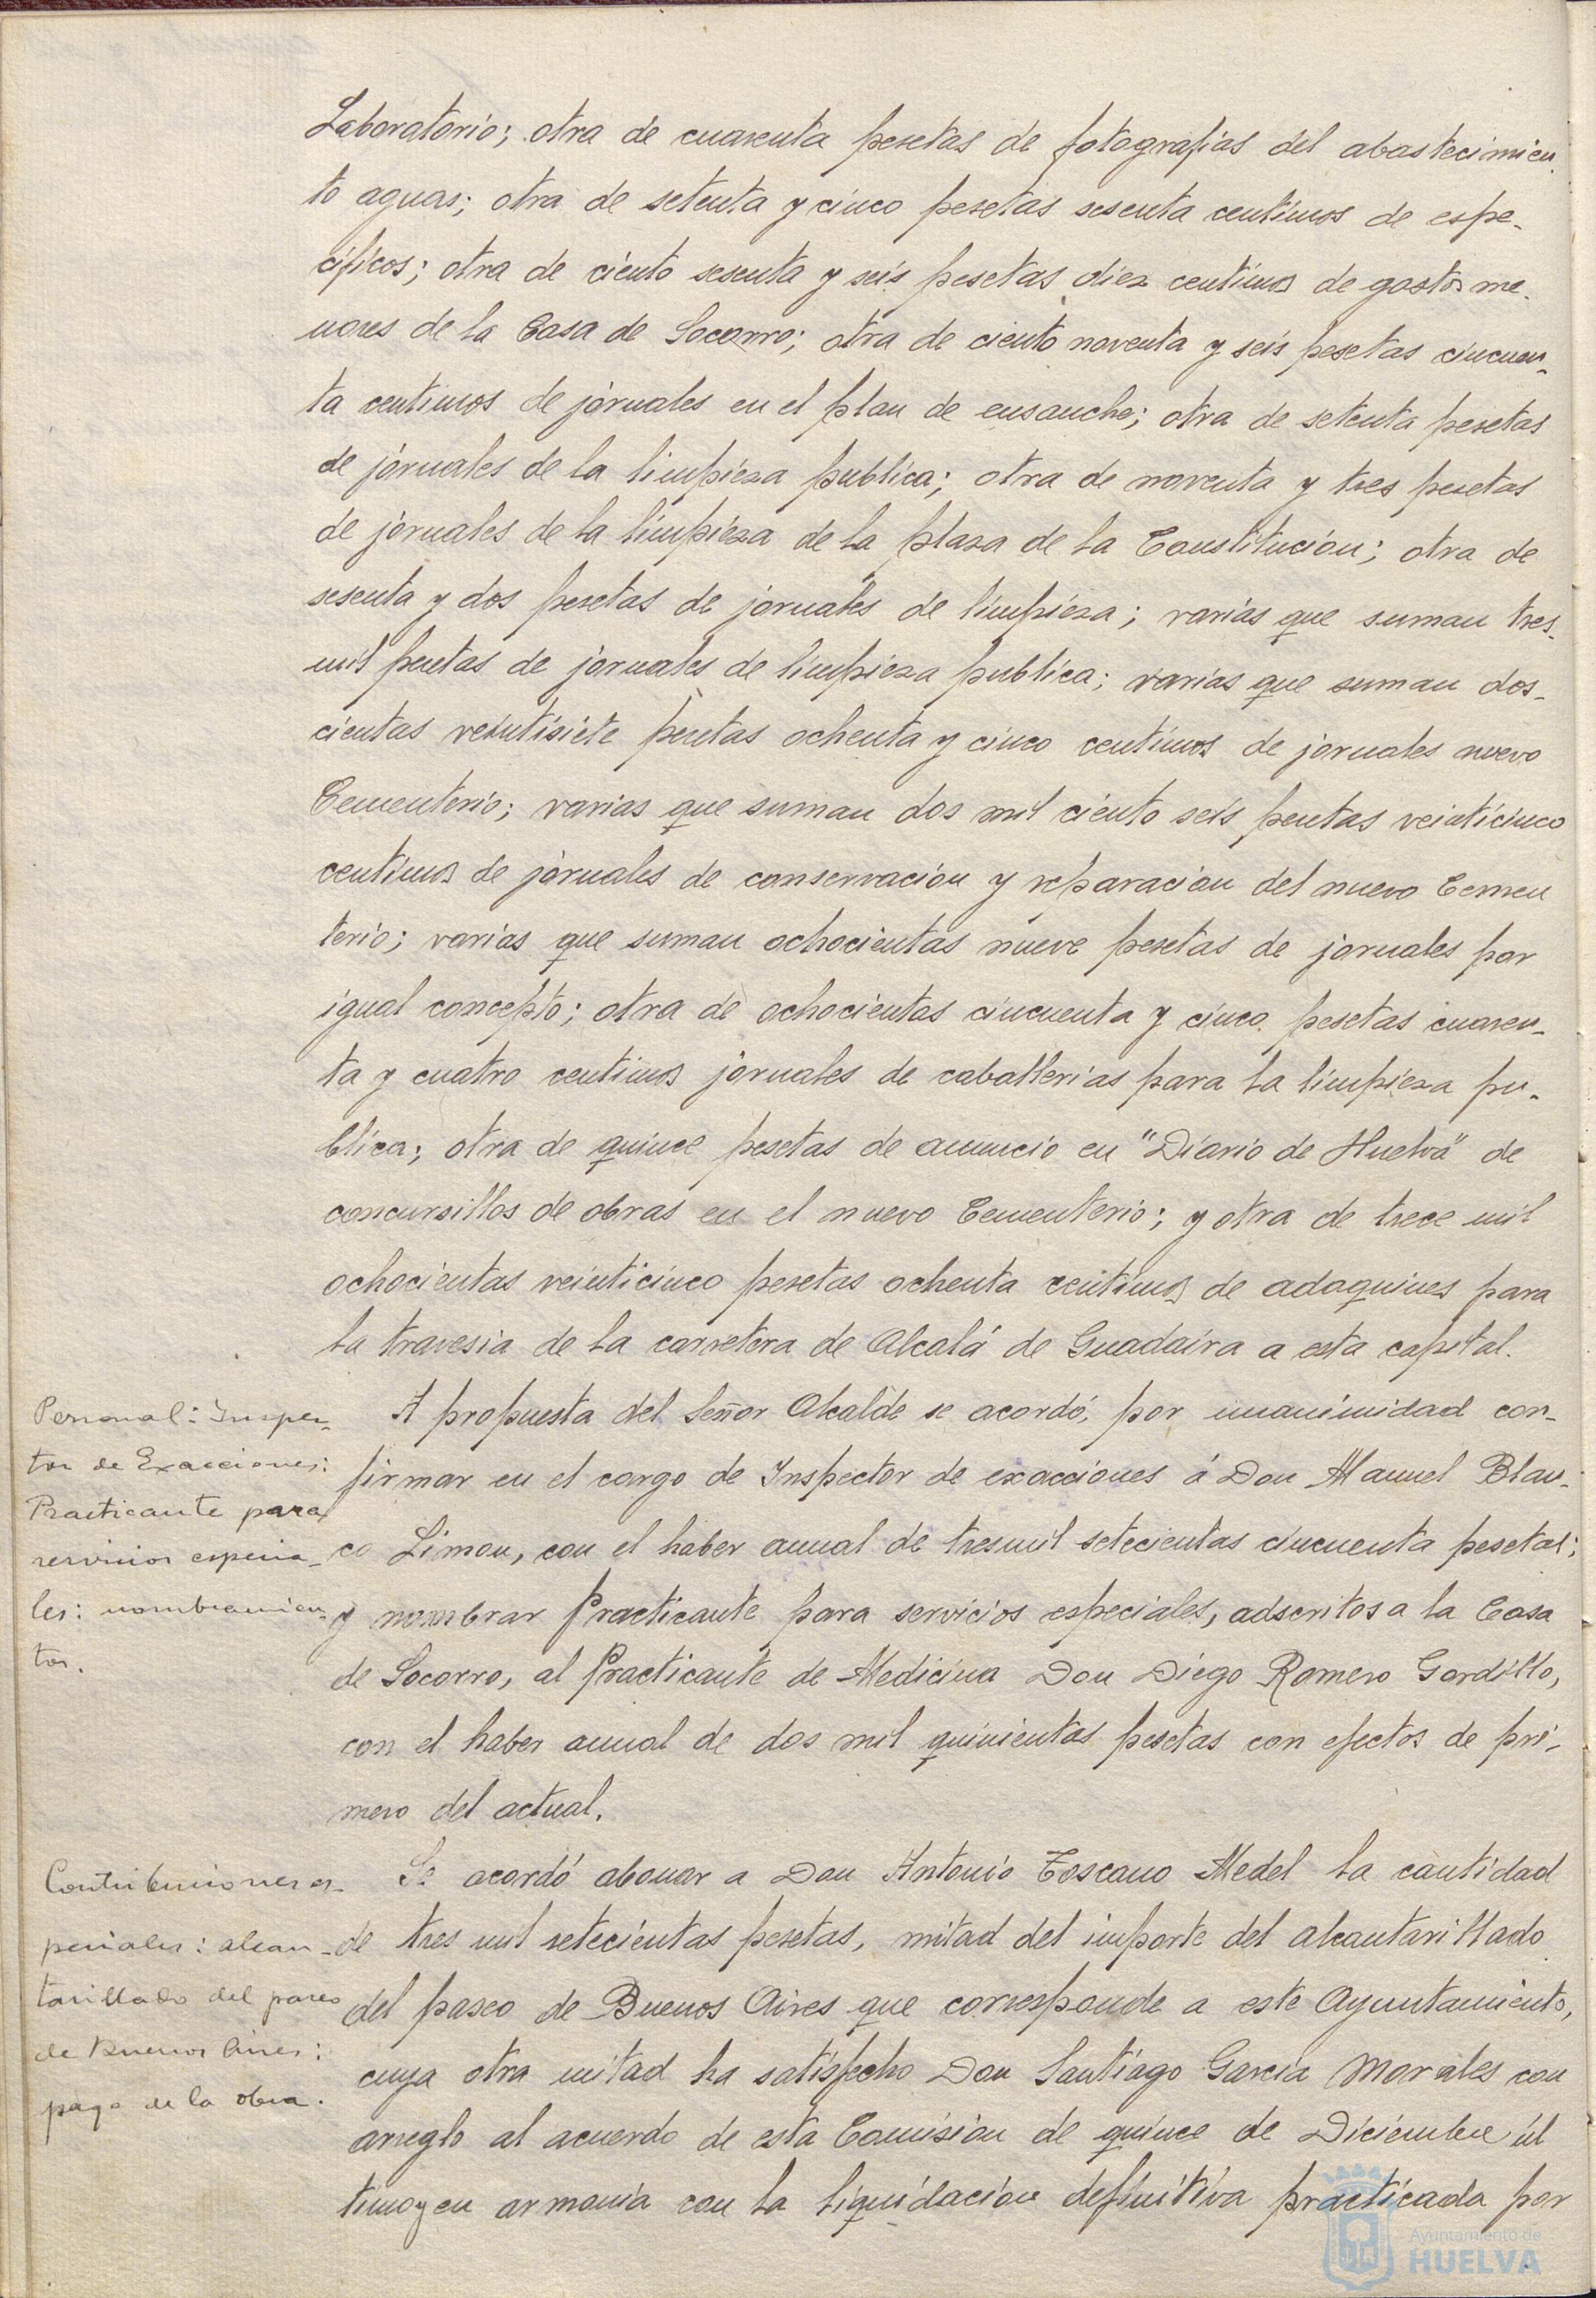 Laboratorio; otra de cuarenta pesetas de fotografias del abastecimien
to aguas; otra de setenta y cinco pesetas sesenta centimos de espe-
cificos; otra de ciento sesenta y seis pesetas diez centimos de gastos me-
nores de la Casa de Socorro; otra de ciento noventa y seis pesetas cincuen-
ta centimos de jornales en el plan de ensanche; otra de setenta pesetas
de jornales de la limpieza publica; otra de noventa y tres pesetas
de jornales de la limpieza de la plaza de la Constitucion; otra de
sesenta y dos pesetas de jornales de limpieza; varias que suman tres-
mil pesetas de jornales de limpieza publica; varias que suman dos-
cientas veintisiete pesetas ochenta y cinco centimos de jornales nuevo
Cementerio; varias que suman dos mil ciento seis pesetas veinticinco
centimos de jornales de conservacion y reparacion del nuevo Cemen
terio; varias que suman ochocientas nueve pesetas de jornales por
igual concepto; otra de ochocientas cincuenta y cinco pesetas cuaren-
ta y cuatro centimos jornales de caballerias para la limpieza pu-
blica; otra de quince pesetas de anuncio en "Diario de Huelva" de
concursillos de obras en el nuevo Cementerio; y otra de trece mil
ochocientas veinticinco pesetas ochenta centimos de adoquines para
la travesia de la carretera de Alcalá de Guadaira a esta capital.
Personal: Inspec-
tor de Exacciones:
Practicante para
servicios especia-
les: nombramien-
tos.
A propuesta del Señor Alcalde se acordó, por unanimidad con-
firmar en el cargo de Inspector de exacciones á Don Manuel Blan-
co Limon, con el haber anual de tresmil setecientas cincuenta pesetas;
y nombrar Practicante para servicios especiales, adscritos a la Casa
de Socorro, al Practicante de Medicina Don Diego Romero Gordillo,
con el haber anual de dos mil quinientas pesetas con efectos de pri-
mero del actual.
Contribuciones es-
peciales: alcan-
tarillado del paseo
de Buenos Aires:
pago de la obra.
Se acordó abonar a Don Antonio Toscano Medel la cantidad
de tres mil setecientas pesetas, mitad del importe del alcantarillado
del paseo de Buenos Aires que corresponde a este Ayuntamiento,
cuya otra mitad ha satisfecho Don Santiago Garcia Morales con
arreglo al acuerdo de esta Comision de quince de Diciembre úl
timo y en armonia con la liquidacion definitiva practicada por
Ayuntamiento de
HUELVA